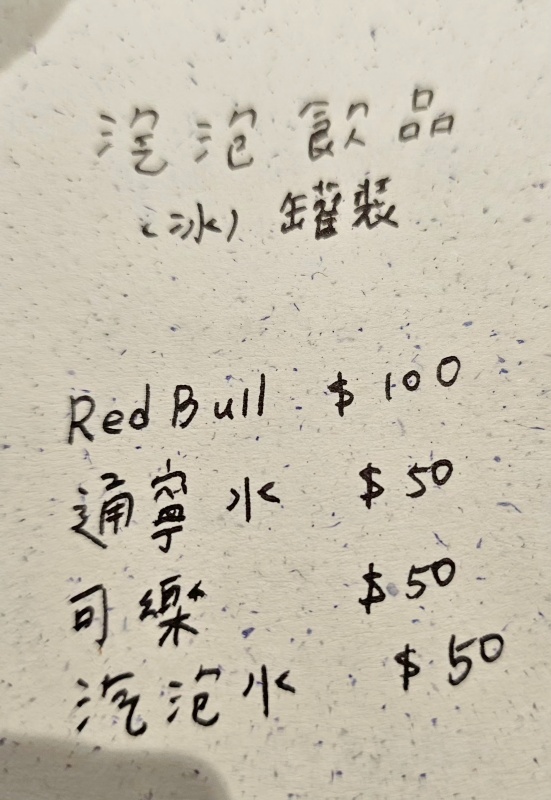 汽泡飲品
(冰) 罐裝
Red Bull $100
通寧水 $50
可樂 $50
汽泡水 $50